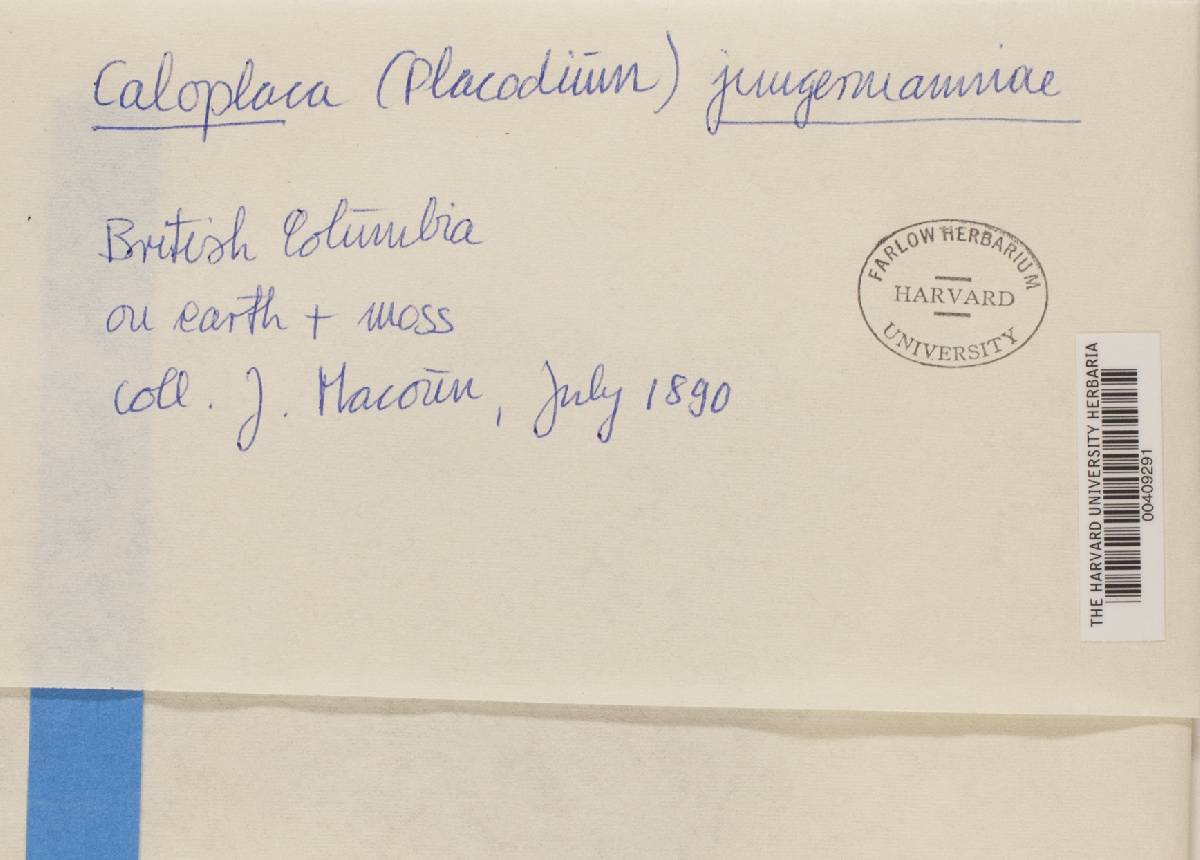 Caloplaca (Placodium) jungermanniae
British Columbia
on earth + moss
coll. J. Macoun, July 1890
FARLOW HERBARIUM
HARVARD
UNIVERSITY
THE HARVARD UNIVERSITY HERBARIA
00409291